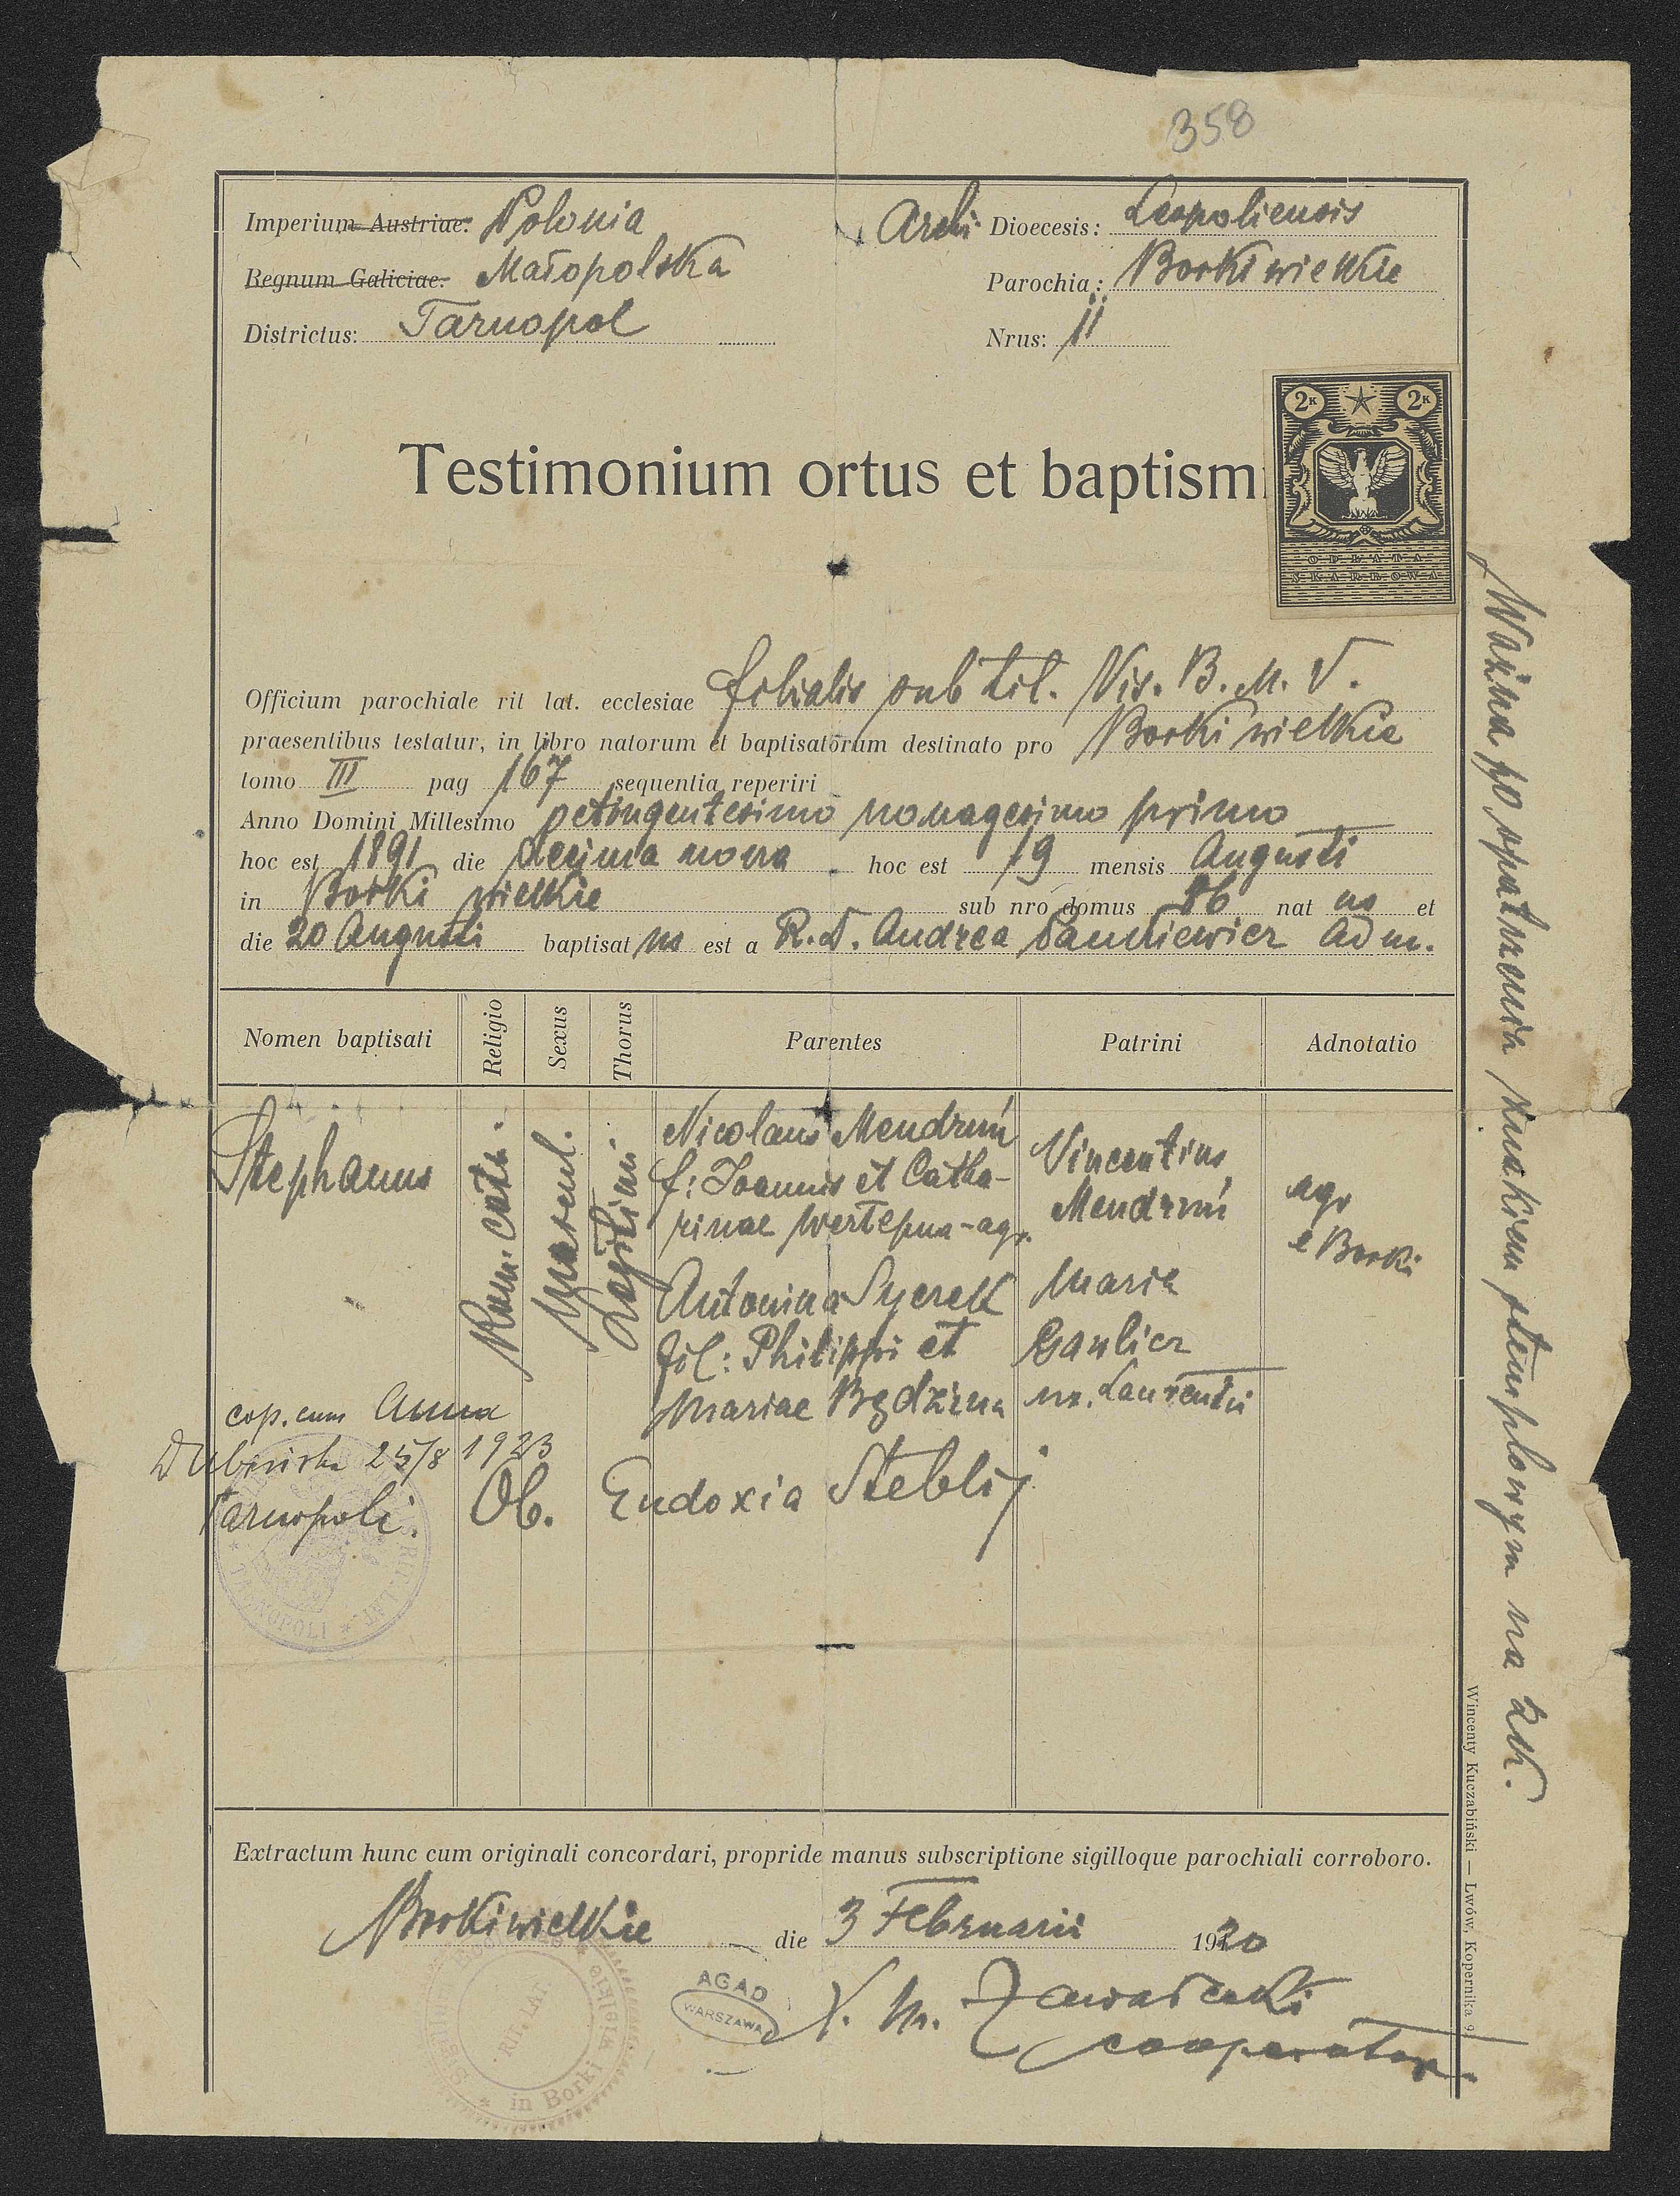 358
Imperium Austriae. Polonia
Archi Dioecesis: Leopoliensis
Regnum Galiciae. Małopolska
Parochia: Borki wielkie
Districtus: Tarnopol
Nrus: 11
2K 2K
OPŁATA
SKARBOWA
Testimonium ortus et baptismi
Officium parochiale rit lat. ecclesiae filialis sub tit. Vis. B. M. V.
praesentibus testatur, in libro natorum et baptisatorum destinato pro Borki wielkie
tomo III pag 167 sequentia reperiri
Anno Domini Millesimo octingentesimo nonagesimo primo
hoc est 1891 die decima nona hoc est 19 mensis Augusti
in Borki wielkie sub nro domus 86 nat us et
die 20 Augusti baptisat us est a R. D. Andrea Adm.
Nomen baptisati Religio Sexus Thorus Parentes Patrini Adnotatio
Stephanus
Rom. cath.
Mascul.
Legitimi
Nicolaus Mendruń
f: Joannis et Catha-
rinae Wertepna - agr.
Antonina
fil: Philippi et
Mariae
Vincentius
Mendruń
Maria
Gaulicz
ux. Laurentii
agr
e Borki
cop. cum Anna
25/8 1923
Tarnopoli.
Ob. Eudoxia Steblij
RIT. LAT. * TARNOPOLI *
Extractum hunc cum originali concordari, propride manus subscriptione sigilloque parochiali corroboro.
Borki wielkie die 3 Februarii 1920
X. M. Zawadzki
cooperator
AGAD
WARSZAWA
RIT. LAT.
* in Borki wielkie
Ważna po opatrzeniu znakiem stemplowym na 2K.
Wincenty Kuczabiński — Lwów, Kopernika 9